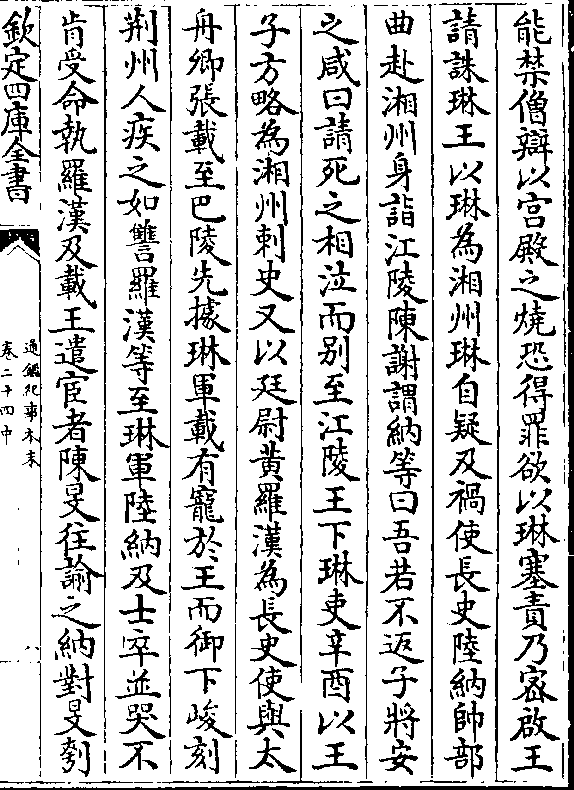 能禁僧辯以宫殿之燒恐得罪欲以琳塞責乃宻啟王
請誅琳王以琳為湘州琳自疑及禍使長史陸納帥部
曲赴湘州身詣江陵陳謝謂納等曰吾若不返子將安
之咸曰請死之相泣而别至江陵王下琳吏辛酉以王
子方略為湘州刺史又以廷尉黄羅漢為長史使與太
舟卿張載至巴陵先據琳軍載有寵於王而御下峻刻
荆州人疾之如讐羅漢等至琳軍陸納及士卒並哭不
肯受命執羅漢及載王遣宦者陳旻往諭之納對旻刳
欽定四庫全書
通鑑紀事本末
卷二十四中
八